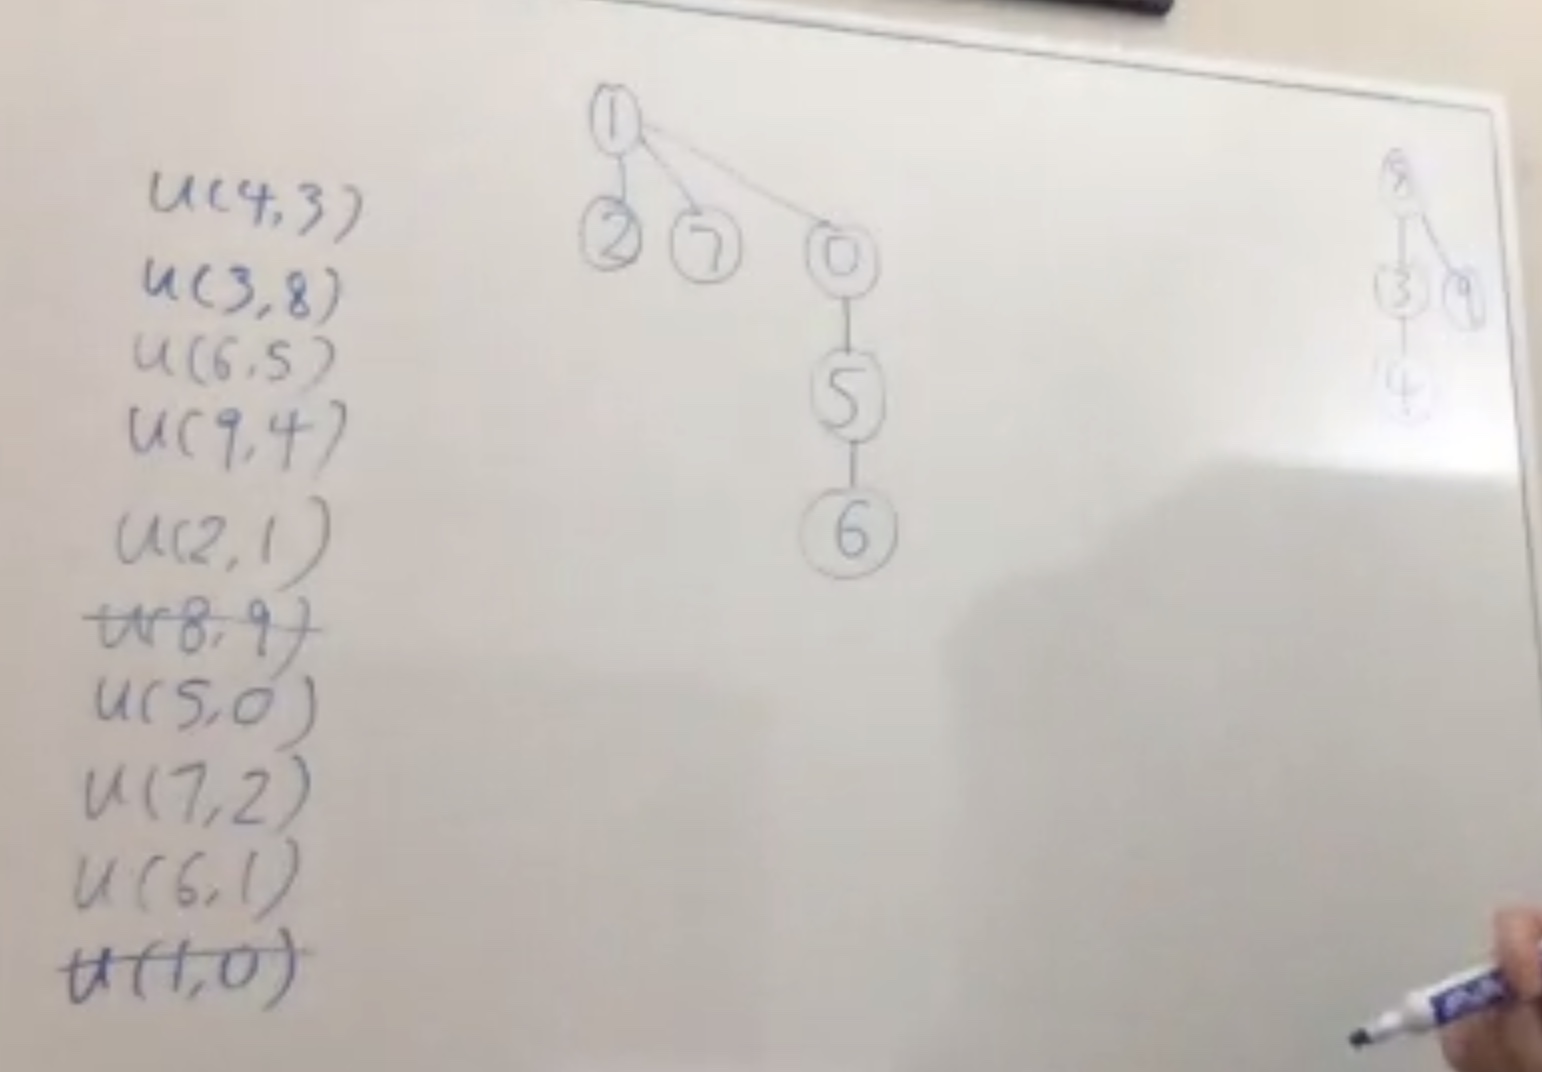 U(4,3)
U(3,8)
U(6,5)
U(9,4)
U(2,1)
U(8,9)
U(5,0)
U(7,2)
U(6,1)
U(1,0)
1
2 7 0
5
6
8
3 9
4